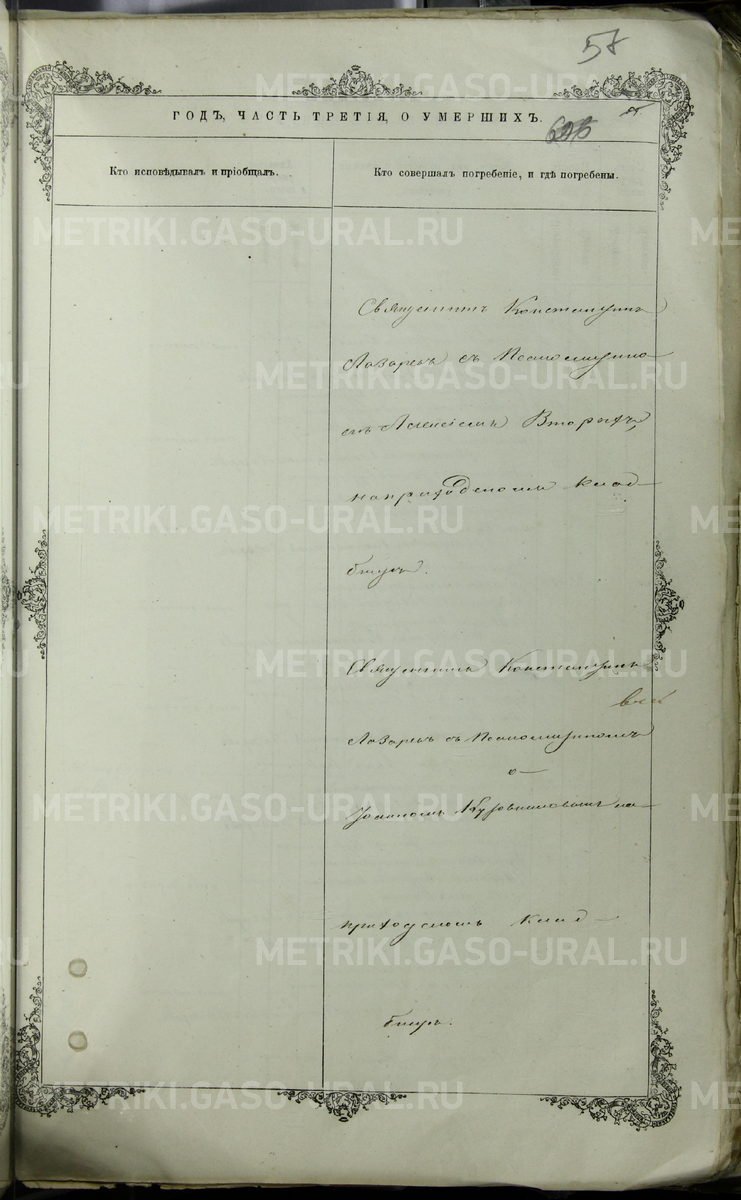 57
ГОДЪ, ЧАСТЬ ТРЕТІЯ, О УМЕРШИХЪ.
Кто исповѣдывалъ и пріобщалъ.
Кто совершалъ погребеніе, и гдѣ погребены.
Священникъ Константинъ
Лазаревъ съ Псаломщико
мъ Алексіемъ Вторыхъ,
на приходскомъ клад
бищѣ.
Священникъ Константинъ
Лазаревъ съ Псаломщикомъ
Іоанномъ на
приходскомъ клад
бищѣ.
METRIKI.GASO-URAL.RU